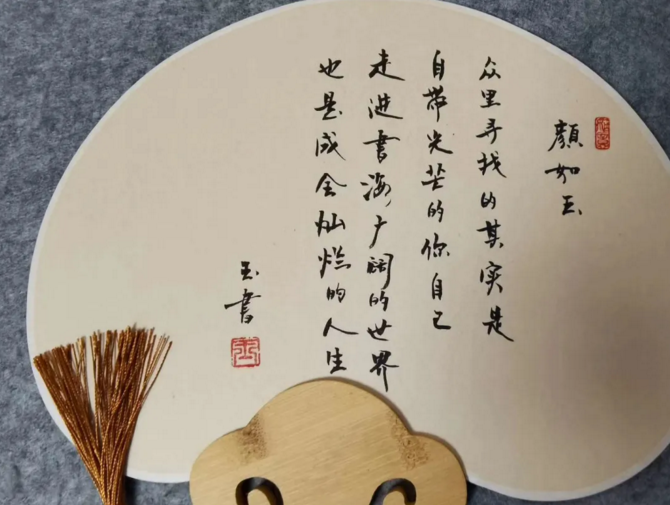 顏如玉
众里寻找的其实是
自带光芒的你自己
走进書海广阔的世界
也是成全灿烂的人生
玉書